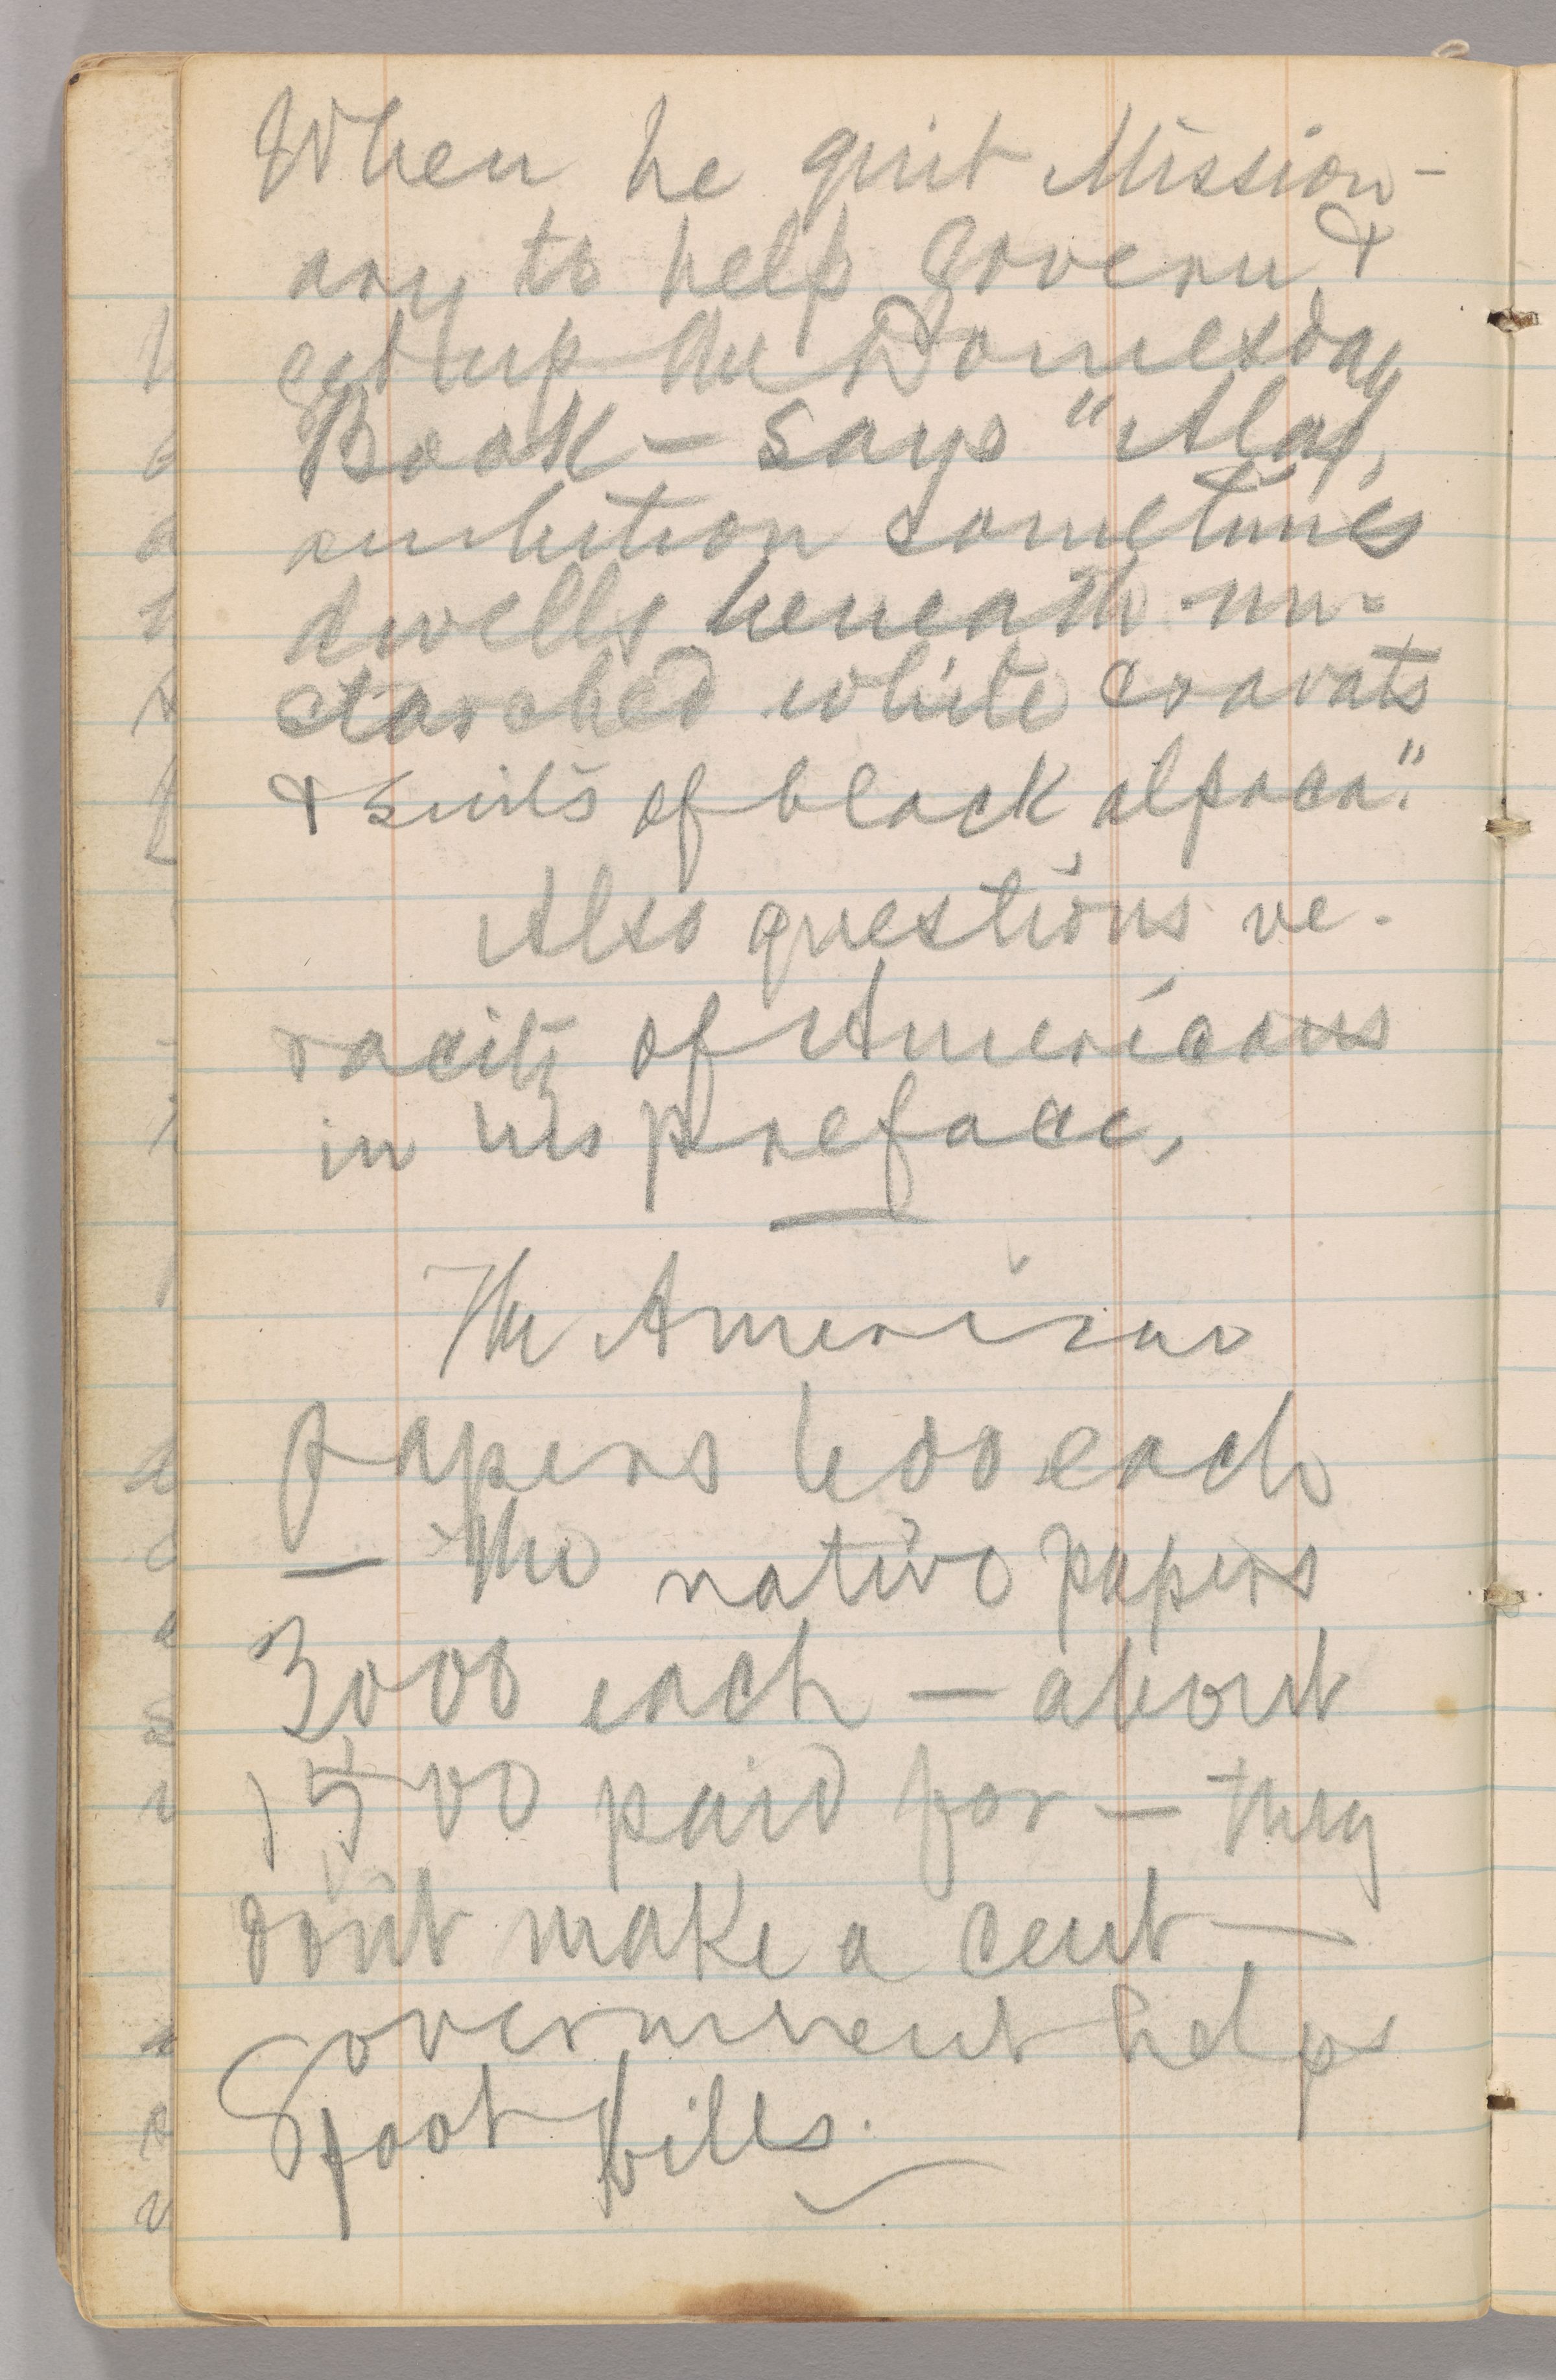 When he quit Mission-
ary to help govern &
get up the Domesday
Book — says "Alas,
ambition sometimes
dwells beneath un-
starched white cravats
& suits of black alpaca."
Also questions ve-
racity of Americans
in his preface,
The American
papers 600 each
— the native papers
3000 each — about
1500 paid for — they
don't make a cent —
Government helps
foot bills.